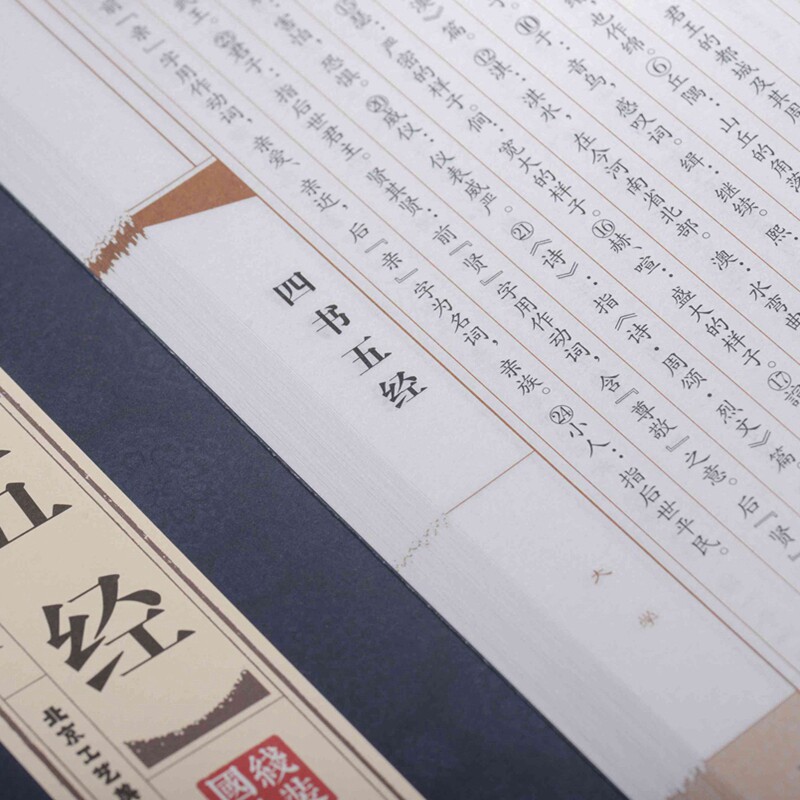 君王的都城及其周
也作绵。⑥丘隅:山丘的角落
于:音乌,感叹词。缉:继续。熙:
》篇。⑫淇:洪水,在今河南省北部。澳:水弯曲
严密的样子。僩:宽大的样子。⑯赫、喧:盛大的样子。⑰
害怕,恐惧。⑳威仪:仪表威严。㉑《诗》:指《诗·周颂·烈文》篇
武王。君子:指后世君主。贤其贤:前『贤』字用作动词,含『尊敬』之意。后『贤』
前『亲』字用作动词,亲爱、亲近,后『亲』字为名词,亲族。㉔小人:指后世平民。
四书五经
大学
五经
北京工艺
线装
國